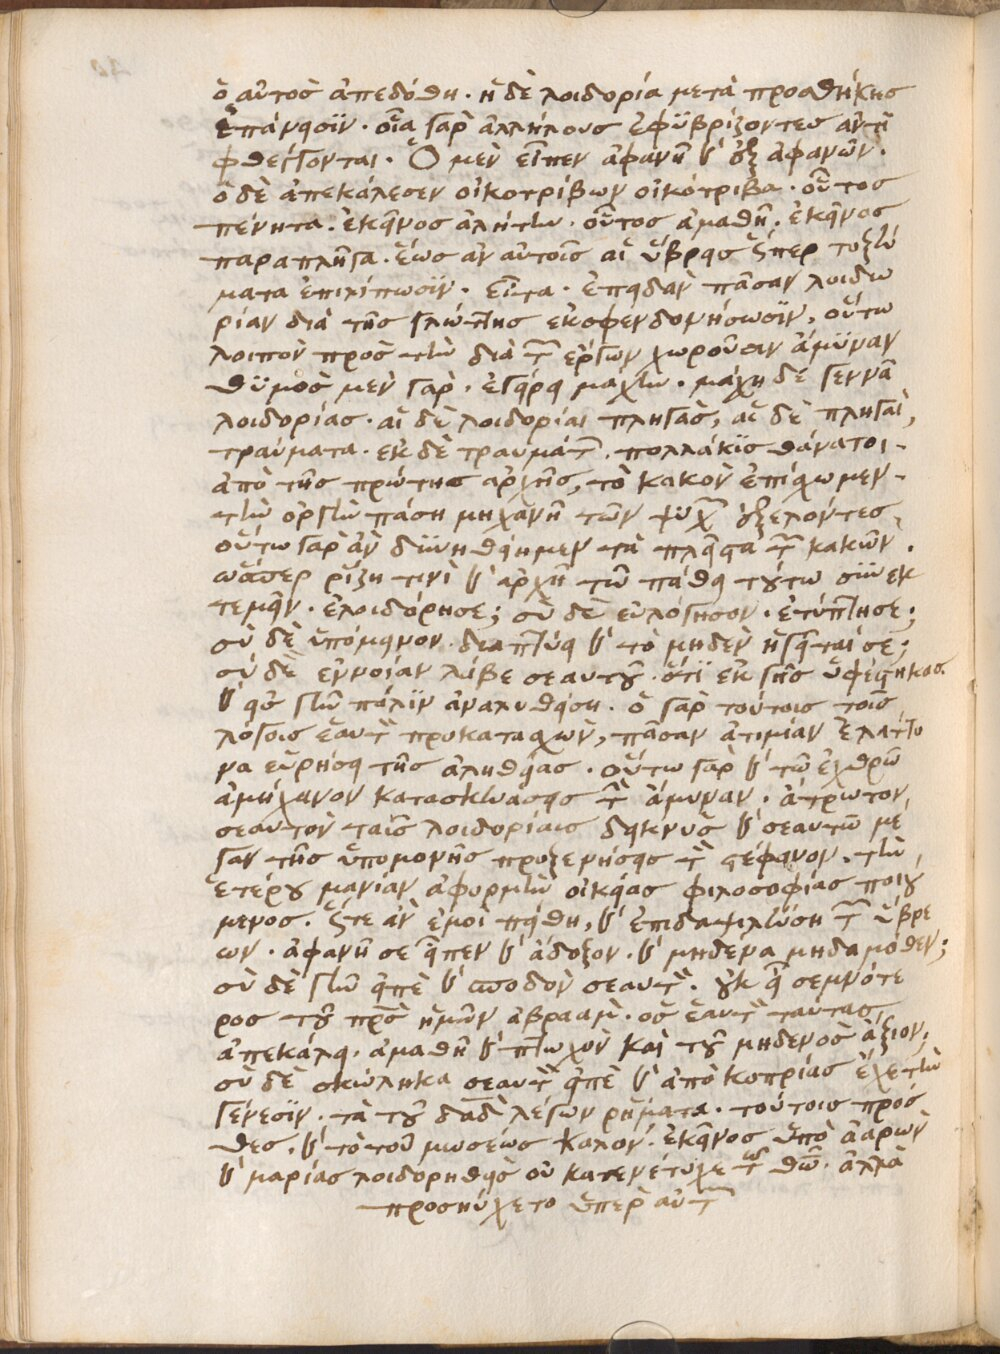 ὁ αὐτὸσ ἀπεδόθη· ἡ δὲ λοιδορία μετὰ προσθήκης
ἐπάνεισϊν· οἷα γὰρ ἀλλήλους ἐφϋβρίζοντες ἀντι
φθέγγονται· Ὁ μὲν εἶπεν ἀφανῆ καὶ ἐξ ἀφανῶν·
ὁ δὲ ἀπεκάλεσεν οἰκοτρίβων οἰκότριβα· οὗτος
πένητα· ἐκεῖνος ἀλήτην· οὗτος ἀμαθῆ· ἐκεῖνος
παραπλῆγα· ἕως ἂν αὐτοῖς αἱ ὕβρεις ὥσπερ τοξεύ
ματα ἐπιλίπωσϊν· εἶτα· ἐπειδὰν πᾶσαν λοιδω
ρίαν διὰ τῆς γλώττης ἐκσφενδονήσωσϊν, οὕτω
λοιπὸν πρὸς τὴν διὰ τῶν ἔργων χωροῦσιν ἄμϋναν
θϋμὸς μὲν γὰρ· ἐγείρει μάχην· μάχη δὲ γεννᾶ
λοιδορίας· αἱ δὲ λοιδορίαι πληγὰς, αἱ δὲ πληγαὶ,
τραύματα· ἐκ δὲ τραυμάτων· πολλάκϊς θάνατοι·
ἀπὸ τῆς πρώτης ἀρχῆς, τὸ κακὸν ἐπίσχωμεν·
τὴν ὀργὴν πάση μηχανῆ τῶν ψυχῶν ἐξελόντες,
οὕτω γὰρ ἂν δϋνηθείημεν τὰ πλεῖστα τῶν κακῶν·
ὥσπερ ρἵζη τινὶ καὶ ἀρχῆ τῶ πάθει τούτω σϋνεκ
τεμεῖν· ἐλοιδόρησε; σὺ δὲ εὐλόγησον· ἐτύπτησε;
σὺ δὲ ὑπόμεινον· διαπτύει καὶ τὸ μηδὲν ἡγεῖταί σε;
σὺ δὲ ἔννοιαν λάβε σεαυτοῦ· ὅτϊ ἐκ γῆς ὑφέστηκας
καὶ εἰς γῆν πάλϊν ἀναλυθήση· ὁ γὰρ τούτοις τοῖς
λόγοις ἑαυτὸν προκατασχὼν, πᾶσαν ἀτιμίαν ἐλάττο
να εὑρήσει τῆς ἀληθείας· οὕτω γὰρ καὶ τῶ ἐχθρῶ
ἀμήχανον κατασκευάσεις τὴν ἄμυναν· ἄτρωτον
σεαυτὸν ταῖς λοιδορίαις δεικνὺς καὶ σεαυτῶ μέ
γαν τῆς ὑπομονῆς προξενήσεις τὸν στέφανον· τὴν
ἑτέρου μανίαν ἀφορμὴν οἰκείας φιλοσοφίας ποιού
μενος· ὥστε ἂν ἐμοὶ πείθη, καὶ ἐπιδαψιλεύση τῶν ὕβρε
ων· ἀφανῆ σε εἶπεν καὶ ἄδοξον· καὶ μηδένα μηδαμόθεν;
σὺ δὲ γῆν εἰπὲ καὶ σποδὸν σεαυτὸν· οὐκ εἶ σεμνότε
ρος τοῦ πατρὸς ἡμῶν ἀβραὰμ· ὃς ἑαυτὸν ταύτας
ἀπεκάλει· ἀμαθῆ καὶ πτωχὸν καὶ τοῦ μηδενὸς ἄξιον,
σὺ δὲ σκώληκα σεαυτὸν εἰπὲ καὶ ἀπὸ κοπρίας ἔχειν τὴν
γένεσϊν· τὰ τοῦ δαδ λέγων ρήματα· τούτοις πρόσ
θες, καὶ τὸ τοῦ μωσέως καλόν· ἐκεῖνος ὑπὸ ἀαρὼν
καὶ μαρίας λοιδορηθεὶς οὐ κατενέτυχε τῶ θῶ· ἀλλὰ
προσηύχετο ὑπὲρ αὐτῶν